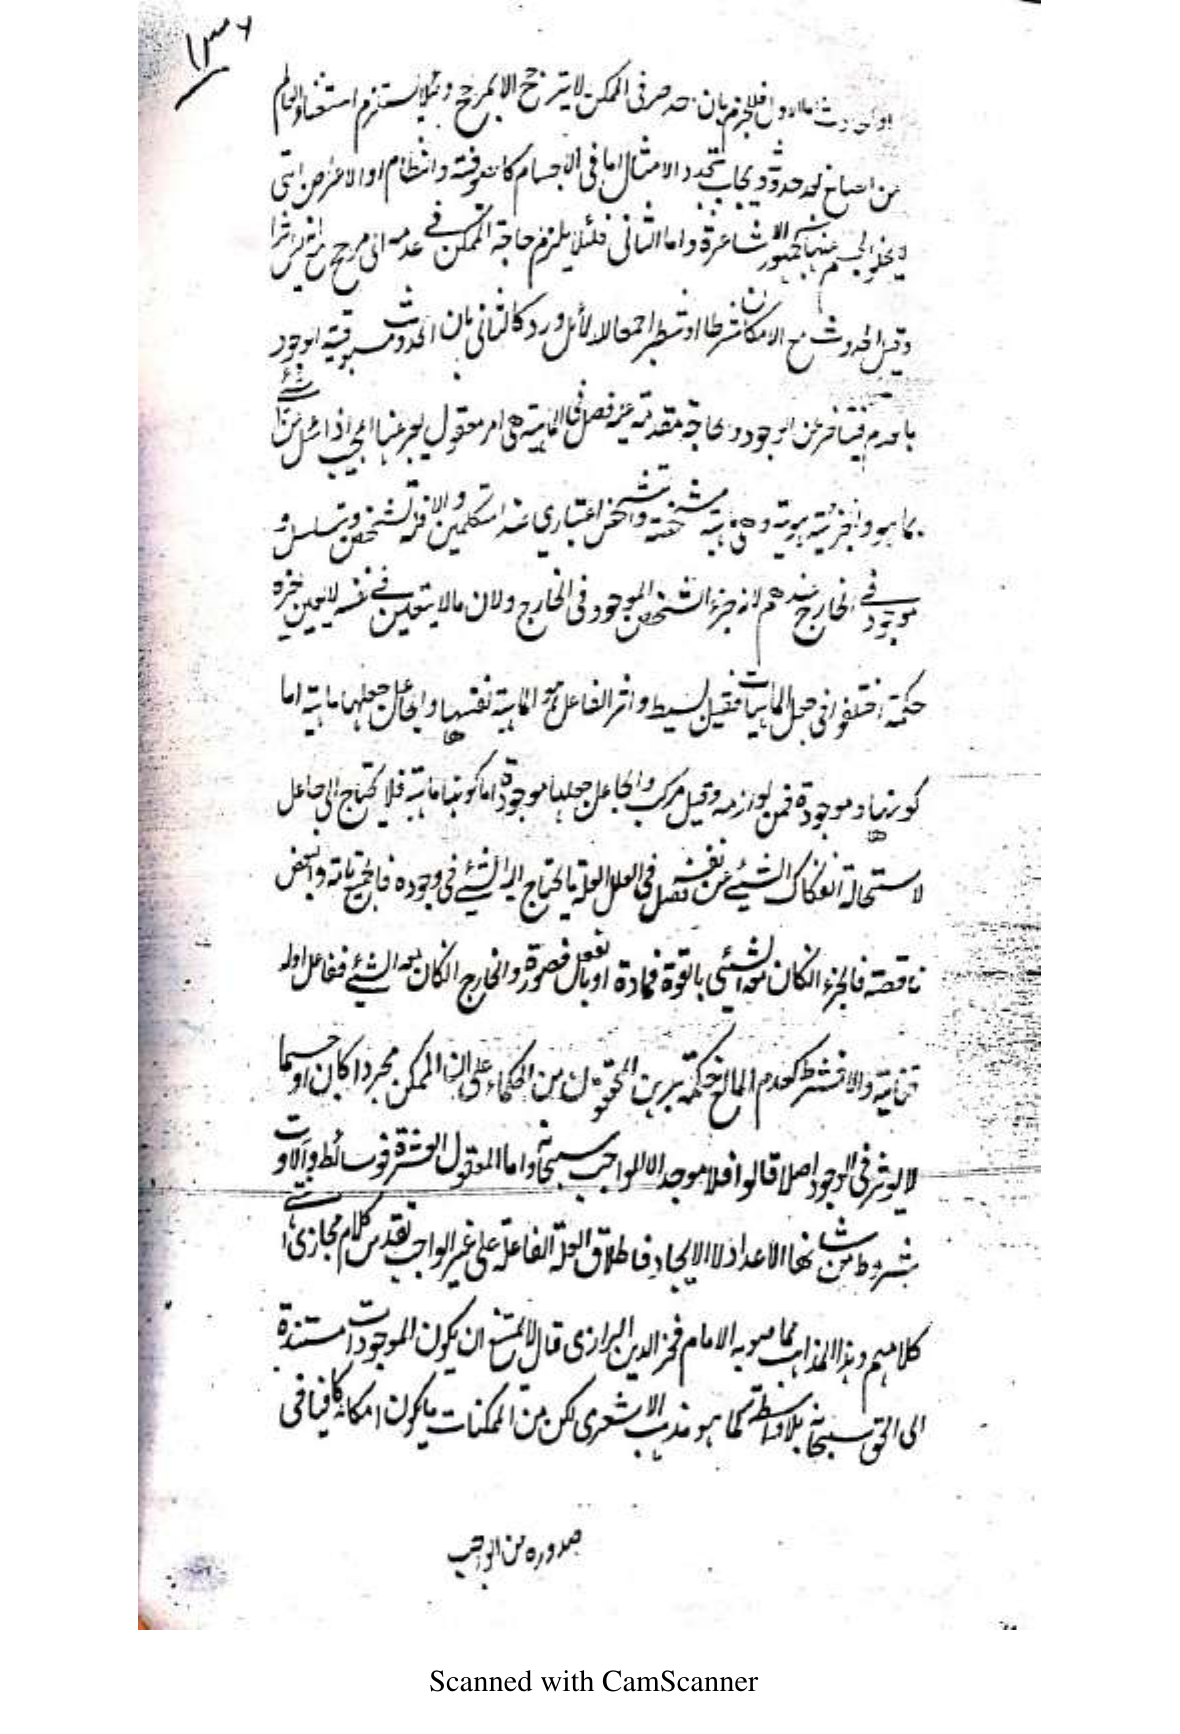 ١٣٦
او الحدوث اما الاول فللجزم بان حصر فى الممكن لا يترجح الا بمرجح ولئلا يستلزم استغناء العالم
عن الصانع بعد حدوثه ويجاب بتجدد الامثال اما فى الاجسام كالصوفية والنظام او الاعراض التى
لا يخلو الجسم عنها كجمهور الاشاعرة واما الثانى فلئلا يلزم حاجة الممكن فى عدمه الى مرجح
وقيل الحدوث مع الامكان شرطا او شطرا جمعا للادلة ورد كالثانى بان الحدوث مسبوقية الوجود
بالعدم فيتأخر عن الوجود والحاجة مقدمة عنه فصل فى الماهية هى امر معقول يعبر عنها المجيب اذا سئل عن شئ
بما هو والجزئية هوية وهى ماهية مشخصة والتشخص اعتبارى عند المتكلمين والا فله تشخص وتسلسل و
موجود فى الخارج عندهم لانه جزء الشخص الموجود فى الخارج ولان مالا يتعين فى نفسه لا يعين غيره
حكمة اختلفوا فى جعل الماهيات فقيل بسيط واثر الفاعل هو الماهية نفسها والجاعل جعلها ماهية اما
كونها موجودة فمن لوازمه وقيل مركب والجاعل جعلها موجودة اما كونها ماهية فلا تحتاج الى جاعل
لاستحالة انفكاك الشئ عن نفسه فصل فى العلل العلة ما يحتاج اليه الشئ فى وجوده فالجميع تامة والبعض
ناقصة فالجزء الكان معه الشئ بالقوة فمادة او بالفعل فصورة والخارج الكان به الشئ ففاعل اوله
فغاية والا فشرط كعدم المانع حكمة برهن المحققون من الحكماء على ان الممكن مجردا كان او جسما
لا يوثر فى الوجود اصلا قالوا فلا موجد الا الواجب سبحانه واما العقول العشرة فوسائط وآلات و
شروط من شانها الاعداد لا الايجاد فاطلاق العلة الفاعلة على غير الواجب تقدس كلام مجازى
كلامهم وهذا المذهب مما صوبه الامام فخر الدين الرازى قال لا يمتنع ان يكون الموجودات مستندة
الى الحق سبحانه بلا واسطة كما هو مذهب الاشعرى لكن من الممكنات ما يكون امكانه كافيا فى
صدوره من الواجب
Scanned with CamScanner